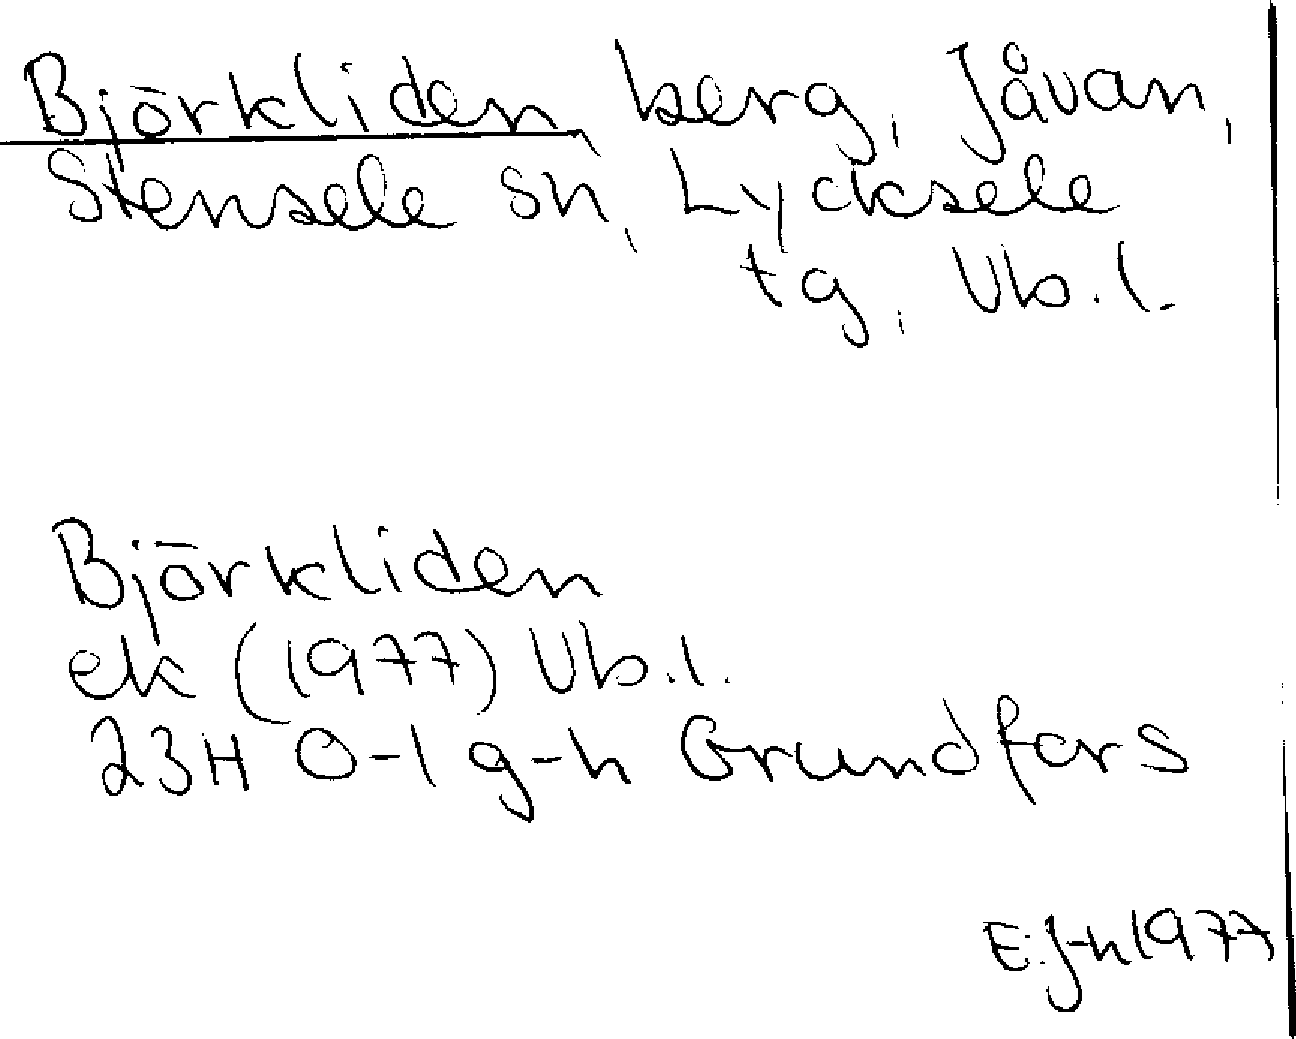 Björkliden, berg, Jåvan,
Stensele sn, Lycksele
tg, Vb.l.
Björkliden
ek (1977) Vb.l.
23H 0-1 g-h Grundfors
E.J-n 1977